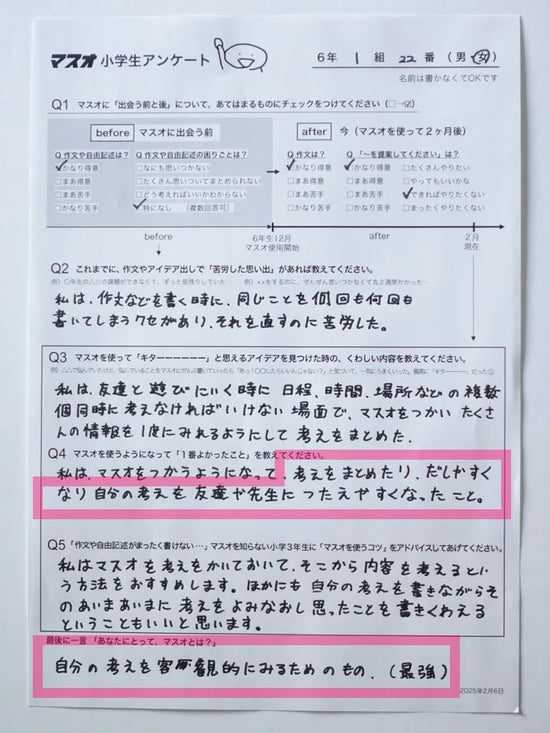 マスオ 小学生アンケート
6年 1 組 22 番 (男・女)
名前は書かなくてOKです
Q1 マスオに「出会う前と後」について、あてはまるものにチェックをつけてください (□→☑)
before マスオに出会う前
after 今 (マスオを使って2ヶ月後)
Q 作文や自由記述は? Q 作文や自由記述の困りごとは? Q 作文は? Q 「〜を提案してください」は?
☑かなり得意 □なにも思いつかない ☑かなり得意 ☑かなり得意 □たくさんやりたい
□まあ得意 □たくさん思いついてまとめられない □まあ得意 □まあ得意 □やってもいいかな
□まあ苦手 □どう考えればいいかわからない □まあ苦手 □まあ苦手 ☑できればやりたくない
□かなり苦手 ☑特になし (複数回答可) □かなり苦手 □かなり苦手 □まったくやりたくない
before 6年生12月 after 2月
マスオ使用開始 現在
Q2 これまでに、作文やアイデア出しで「苦労した思い出」があれば教えてください。
私は、作文などを書く時に、同じことを何回も何回も
書いてしまうクセがあり、それを直すのに苦労した。
Q3 マスオを使って「キターーーーーー」と思えるアイデアを見つけた時の、くわしい内容を教えてください。
私は、友達と遊びにいく時に日程、時間、場所などの複数
個同時に考えなければいけない場面で、マスオをつかいたくさ
んの情報を1度にみれるようにして考えをまとめた。
Q4 マスオを使うようになって「1番よかったこと」を教えてください。
私は、マスオをつかうようになって、考えをまとめたり、だしやすく
なり自分の考えを友達や先生につたえやすくなったこと。
Q5 「作文や自由記述がまったく書けない…」マスオを知らない小学3年生に「マスオを使うコツ」をアドバイスしてあげてください。
私はマスオを考えをかいておいて、そこから内容を考えるとい
う方法をおすすめします。ほかにも自分の考えを書きながらそ
のあいまあいまに考えをよみなおし思ったことを書きくわえる
ということもいいと思います。
最後に一言 「あなたにとって、マスオとは?」
自分の考えを客観的にみるためのもの.(最強)
2025年2月6日